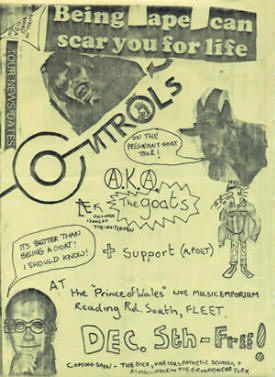 Being ape can
scar you for life
OUR NEWS-DATES
CONTROLS
ON THE
PREGNANT GOAT
TOUR!
A.K.A.
The goats
IT'S BETTER THAN
BEING A GOAT!
I SHOULD KNOW!
+ Support (A. POET)
AT the "Prince of Wales" LIVE MUSIC EMPORIUM
Reading Rd. South, FLEET.
DEC. 5th - FREE!
COMING SOON - THE DICE, VARIOUS PATHETIC SCHOOL, &